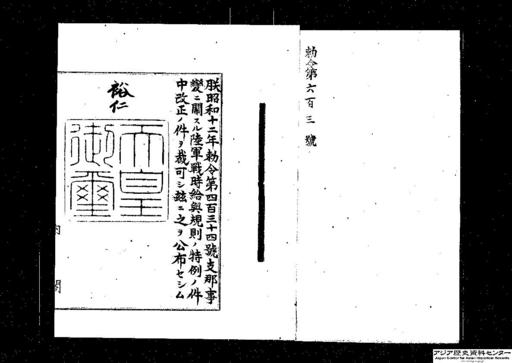 勅令第六百三號
朕昭和十二年勅令第四百三十四號支那事
變ニ關スル陸軍戰時給與規則ノ特例ノ件
中改正ノ件ヲ裁可シ玆ニ之ヲ公布セシム
裕仁
天皇
御璽
内閣
アジア歴史資料センター
Japan Center for Asian Historical Records